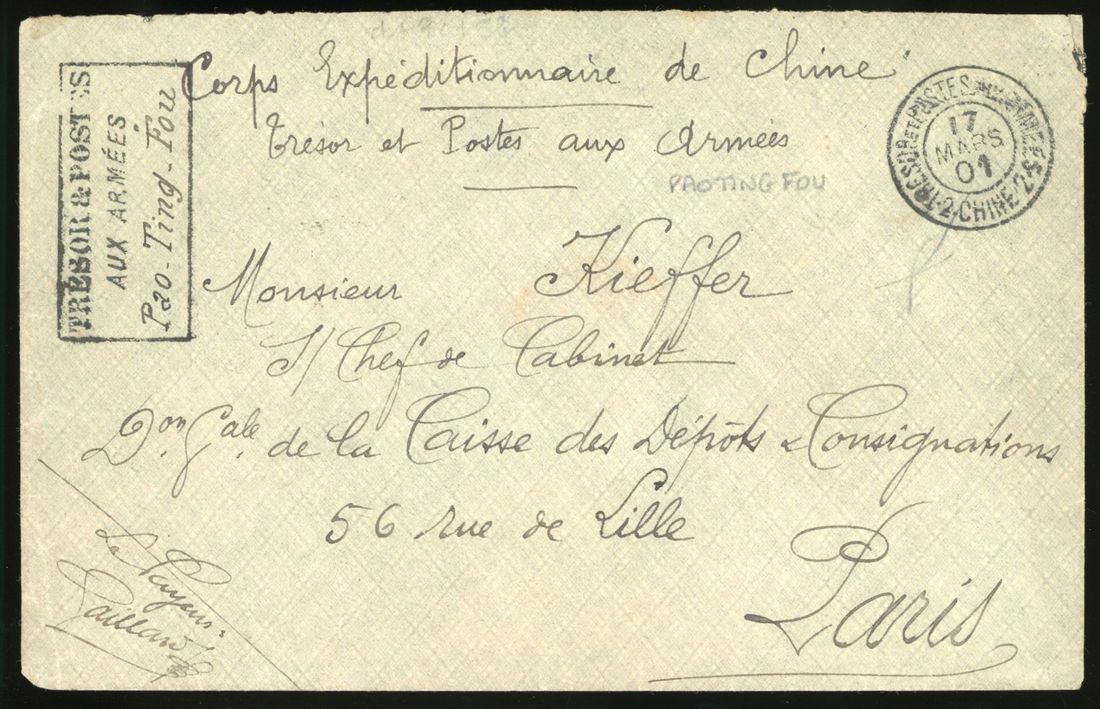 Corps Expéditionnaire de Chine
Trésor et Postes aux Armées
PAOTING FOU
TRÉSOR & POSTES
AUX ARMÉES
Pao-Ting-Fou
TRESOR ET POSTES AUX ARMEES
17
MARS
01
CHINE
Monsieur Kieffer
S/ Chef de Cabinet
Don. Gale. de la Caisse des Dépôts & Consignations
56 rue de Lille
Paris
Le Payeur:
Gaillard